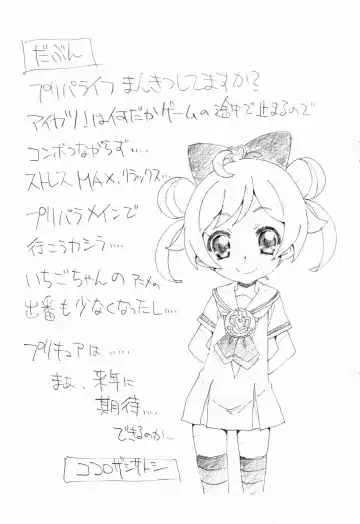 だぶん
プリパライフ まんきつしてますか?
アイカツ!は何だかゲームの途中で止まるので
コンボつながらず....
ストレスMAX.リラックス...
プリパラメインで
行こうカシラ....
いちごちゃんの アニメの
出番も少なくなったし....
プリキュアは .....
まぁ、来年に
期待....
できるのか...
ココロザシサトシ